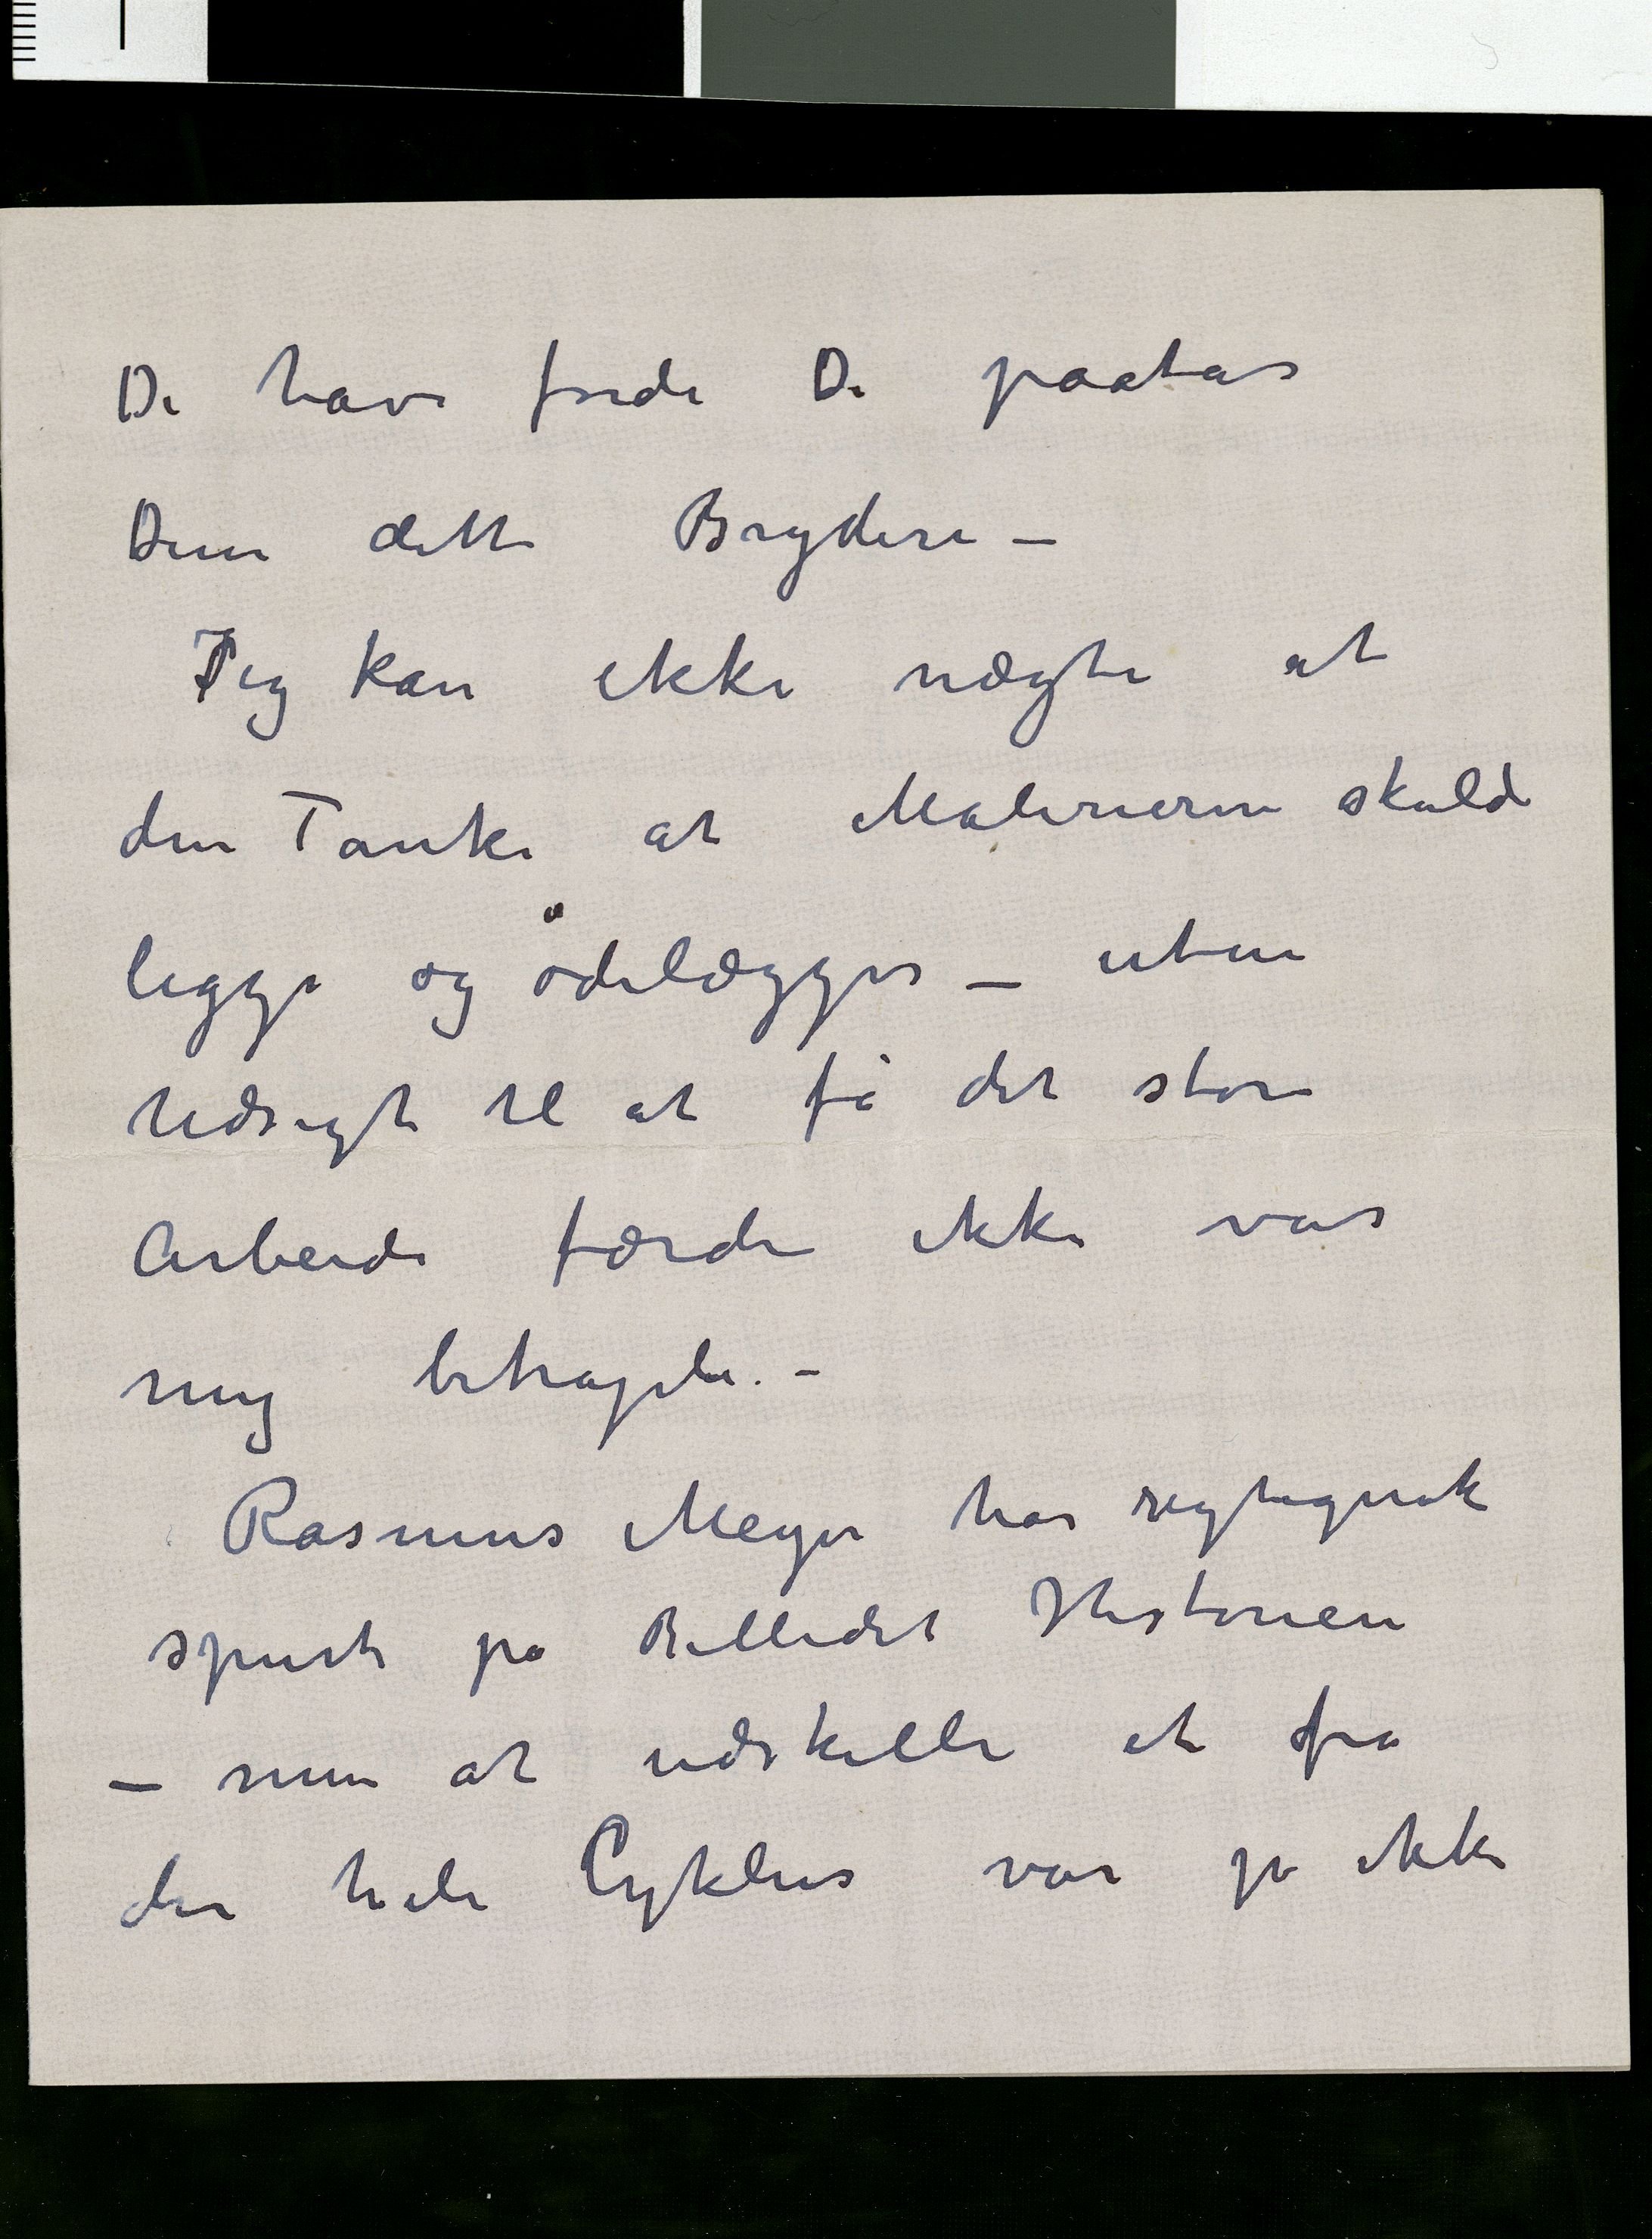 De have fordi De paatar
Dem dette Bryderi –
Jeg kan ikke nægte at
den Tanke at Malerierne skulde
ligge og ödelægges – uten
Udsigt til at få det store
Arbeide færdi ikke var
mig behagele. –
Rasmus Meyer har rigtignok
spurt på Billedet Historien
– men at udskille et fra
den hele Cyklus var jo ikke